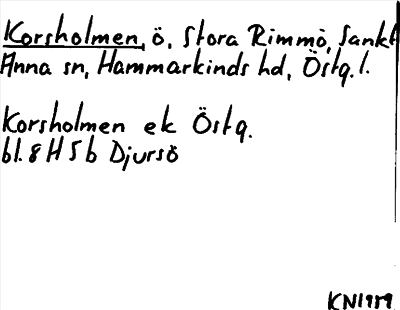 Korsholmen, ö, Stora Rimmö, Sankt
Anna sn, Hammarkinds hd, Östg. l.
Korsholmen ek Östg.
bl. 8 H 5 b Djursö
KN1989